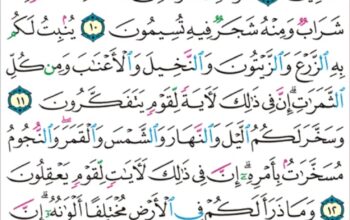 شَرَابٌ وَمِنْهُ شَجَرٌ فِيهِ تُسِيمُونَ ١٠ يُنۢبِتُ لَكُم
بِهِ ٱلزَّرْعَ وَٱلزَّيْتُونَ وَٱلنَّخِيلَ وَٱلْأَعْنَٰبَ وَمِن كُلِّ
ٱلثَّمَرَٰتِ إِنَّ فِى ذَٰلِكَ لَءَايَةً لِّقَوْمٍ يَتَفَكَّرُونَ ١١
وَسَخَّرَ لَكُمُ ٱلَّيْلَ وَٱلنَّهَارَ وَٱلشَّمْسَ وَٱلْقَمَرَ وَٱلنُّجُومُ
مُسَخَّرَٰتٌۢ بِأَمْرِهِۦٓ إِنَّ فِى ذَٰلِكَ لَءَايَٰتٍ لِّقَوْمٍ يَعْقِلُونَ
١٢ وَمَا ذَرَأَ لَكُمْ فِى ٱلْأَرْضِ مُخْتَلِفًا أَلْوَٰنُهُۥٓ إِنَّ